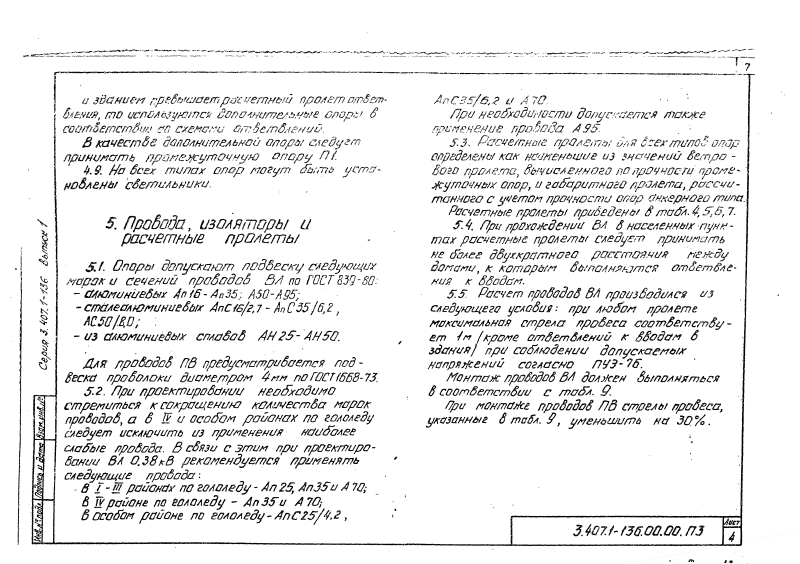 7
и зданием превышает расчетный пролет ответ-
вления, то используются дополнительные опоры в
соответствии со схемами ответвлений.
В качестве дополнительной опоры следует
принимать промежуточную опору П1.
4.9. На всех типах опор могут быть уста-
новлены светильники.
5. Провода, изоляторы и
расчетные пролеты
5.1. Опоры допускают подвеску следующих
марок и сечений проводов ВЛ по ГОСТ 839-80:
- алюминиевых Ап16-Ап35; А50-А95;
- сталеалюминиевых АпС16/2,7-АпС35/6,2,
АС50/8,0;
- из алюминиевых сплавов АН25-АН50.
Для проводов ПВ предусматривается под-
веска проволоки диаметром 4мм по ГОСТ 1668-73.
5.2. При проектировании необходимо
стремиться к сокращению количества марок
проводов, а в IV и особом районах по гололеду
следует исключить из применения наиболее
слабые провода. В связи с этим при проектиро-
вании ВЛ 0,38кВ рекомендуется применять
следующие провода:
в I-III районах по гололеду-Ап25, Ап35 и А70;
в IV районе по гололеду - Ап35 и А70;
в особом районе по гололеду-АпС25/4.2,
АпС35/6,2 и А70.
При необходимости допускается также
применение провода А95.
5.3. Расчетные пролеты для всех типов опор
определены как наименьшие из значений ветро-
вого пролета, вычисленного по прочности проме-
жуточных опор, и габаритного пролета, рассчи-
танного с учетом прочности опор анкерного типа.
Расчетные пролеты приведены в табл. 4, 5, 6, 7.
5.4. При прохождении ВЛ в населенных пунк-
тах расчетные пролеты следует принимать
не более двухкратного расстояния между
домами, к которым выполняются ответвле-
ния к вводам.
5.5. Расчет проводов ВЛ производился из
следующего условия: при любом пролете
максимальная стрела провеса соответству-
ет 1м /кроме ответвлений к вводам в
здания/ при соблюдении допускаемых
напряжений согласно ПУЭ-76.
Монтаж проводов ВЛ должен выполняться
в соответствии с табл. 9.
При монтаже проводов ПВ стрелы провеса,
указанные в табл. 9, уменьшить на 30%.
Серия 3.407.1-136 Выпуск 1
Инв.№ подл. Подпись и дата Взам.инв.№
3.407.1-136.00.00.ПЗ
Лист
4